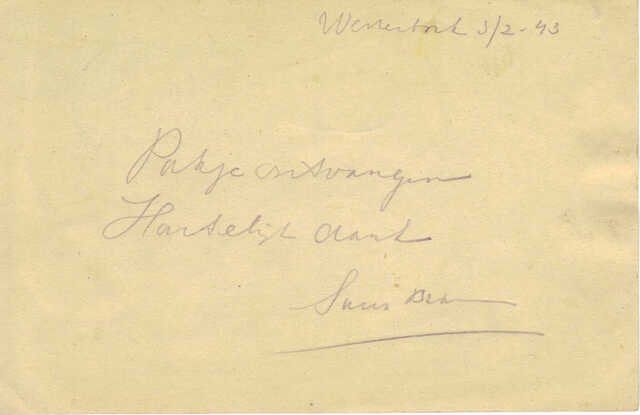 Westerbork 3/2-43
Pakje ontvangen
Hartelijk dank